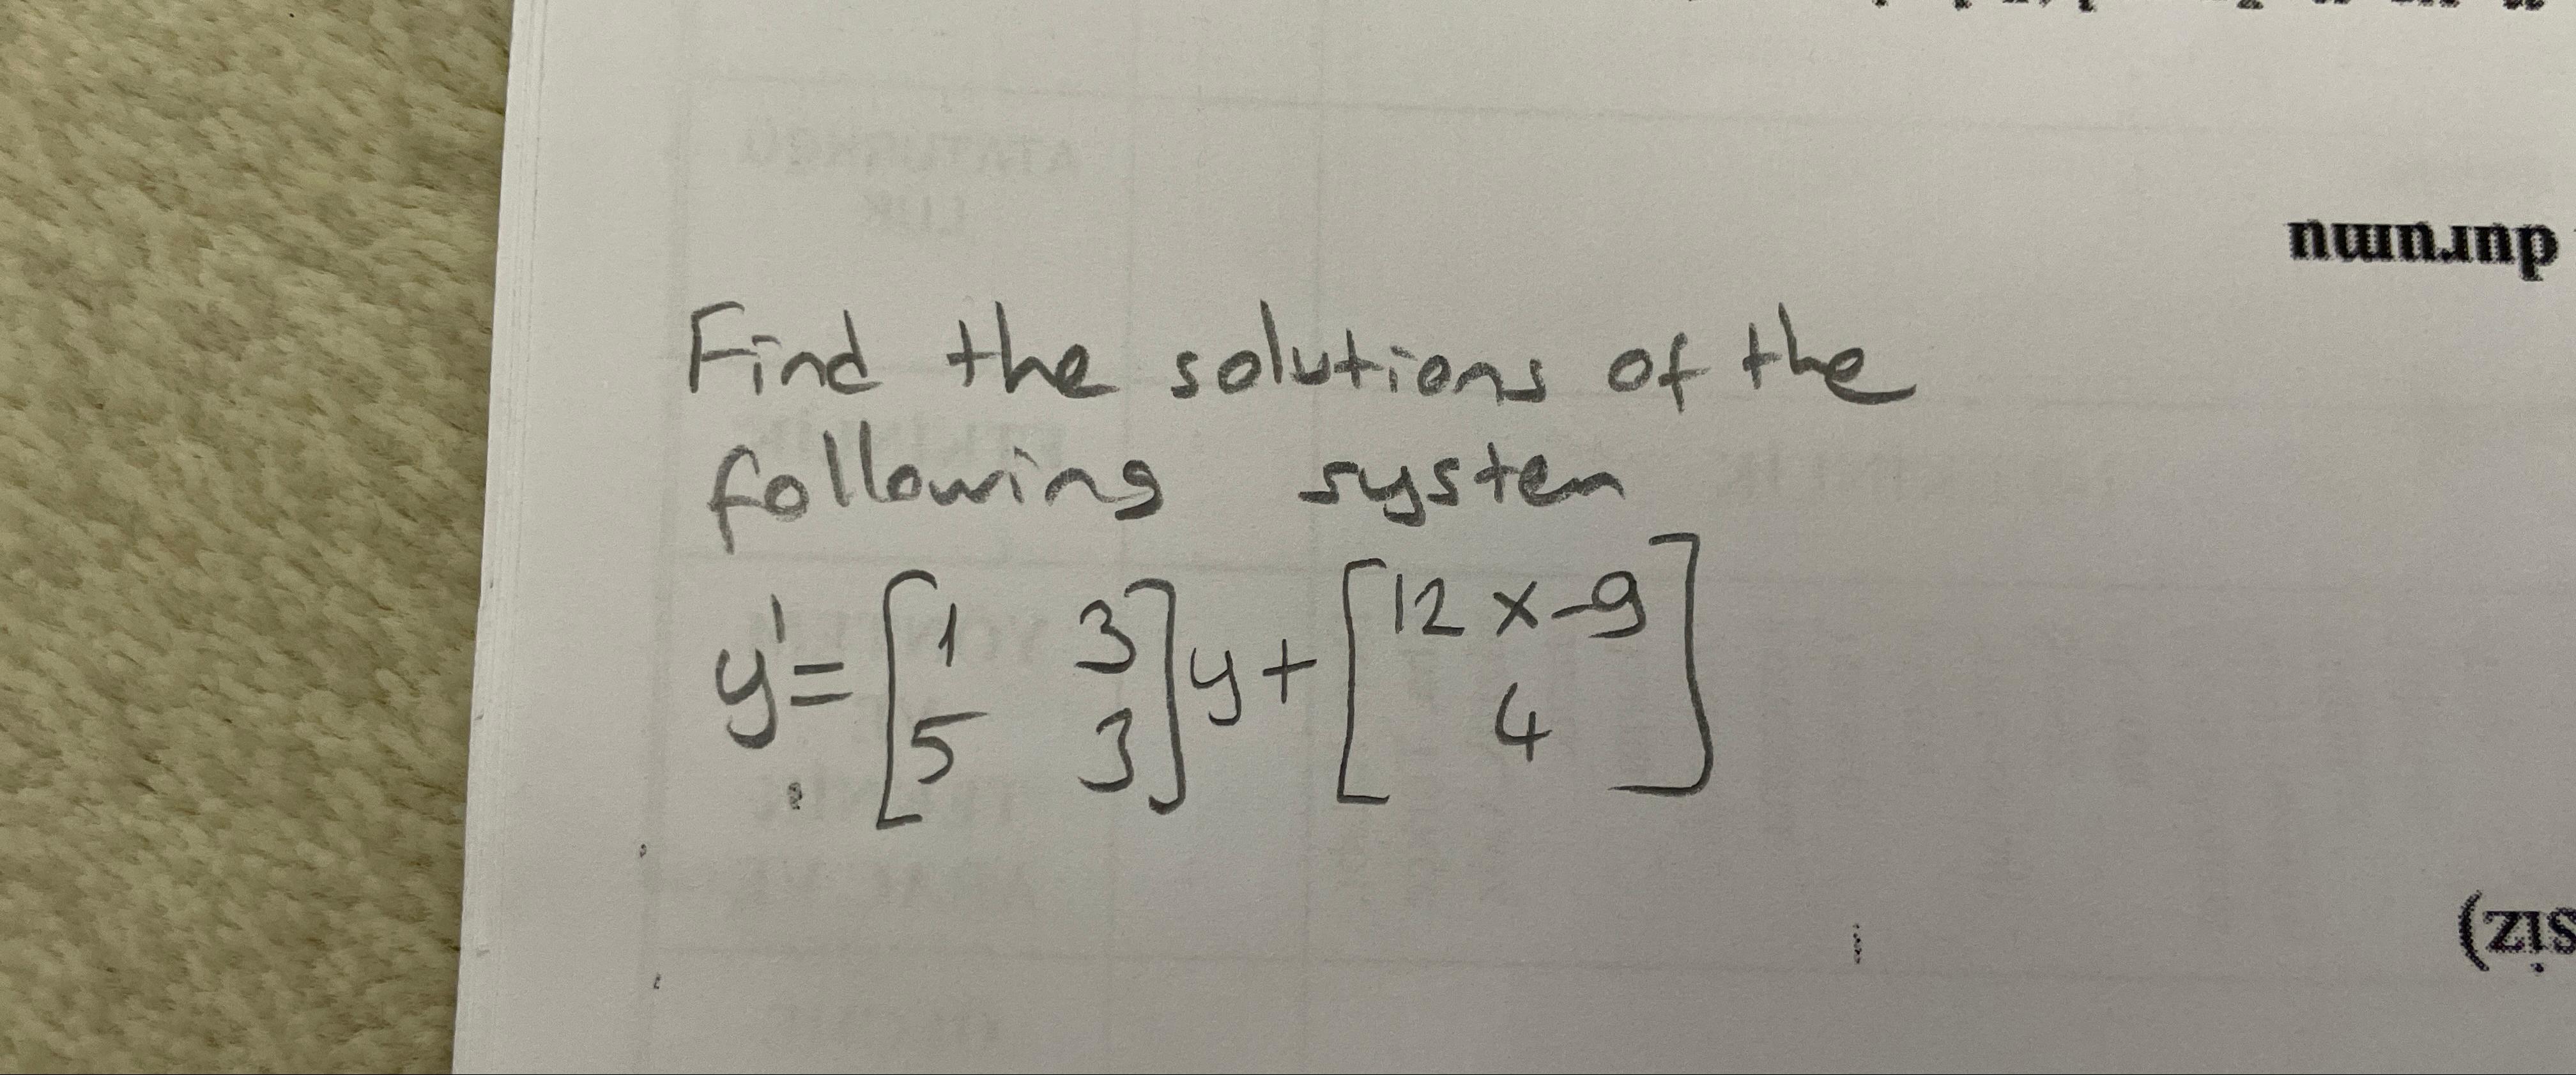 durumu
Find the solutions of the
following system
y' = [1 3
5 3] y + [12x-9
4]
siz)